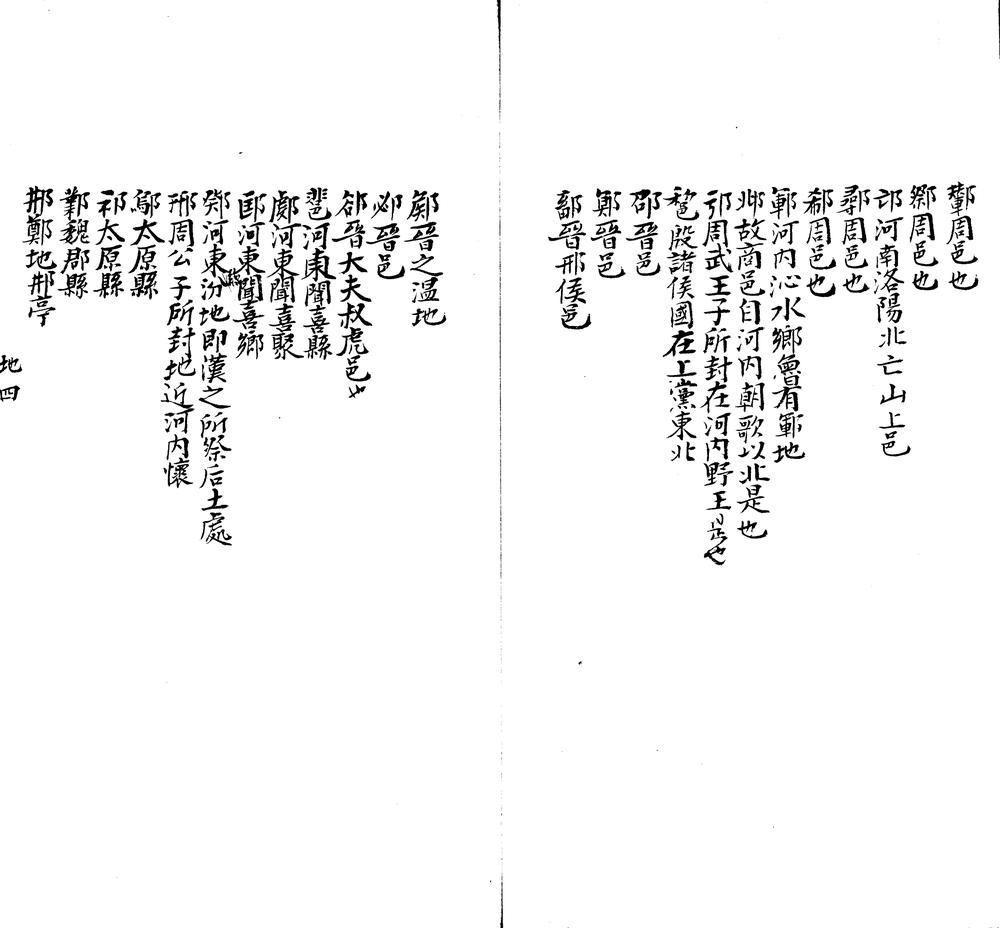 鄻周邑也
䣝周邑也
邙河南洛陽北亡山上邑
鄩周邑也
郗周邑也
鄆河內沁水鄉魯有鄆地
邶故商邑自河內朝歌以北是也
邘周武王子所封在河內野王是也
𨛫殷諸侯國在上黨東北
邵晉邑
鄍晉邑
鄐晉邢侯邑
鄇晉之溫地
邲晉邑
郤晉大夫叔虎邑也
河東聞喜縣
河東聞喜聚
河東聞喜鄉
鄈河東臨汾地即漢之所祭后土處
邢周公子所封地近河內懷
鄔太原縣
祁太原縣
鄴魏郡縣
䢘鄭地䢘亭
地四